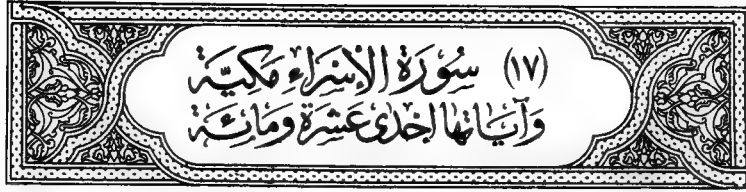 (١٧) سُورَةُ الْإِسْرَاءِ مَكِّيَّة
وَآيَاتُهَا إِحْدَىٰ عَشْرَةَ وَمِائَة